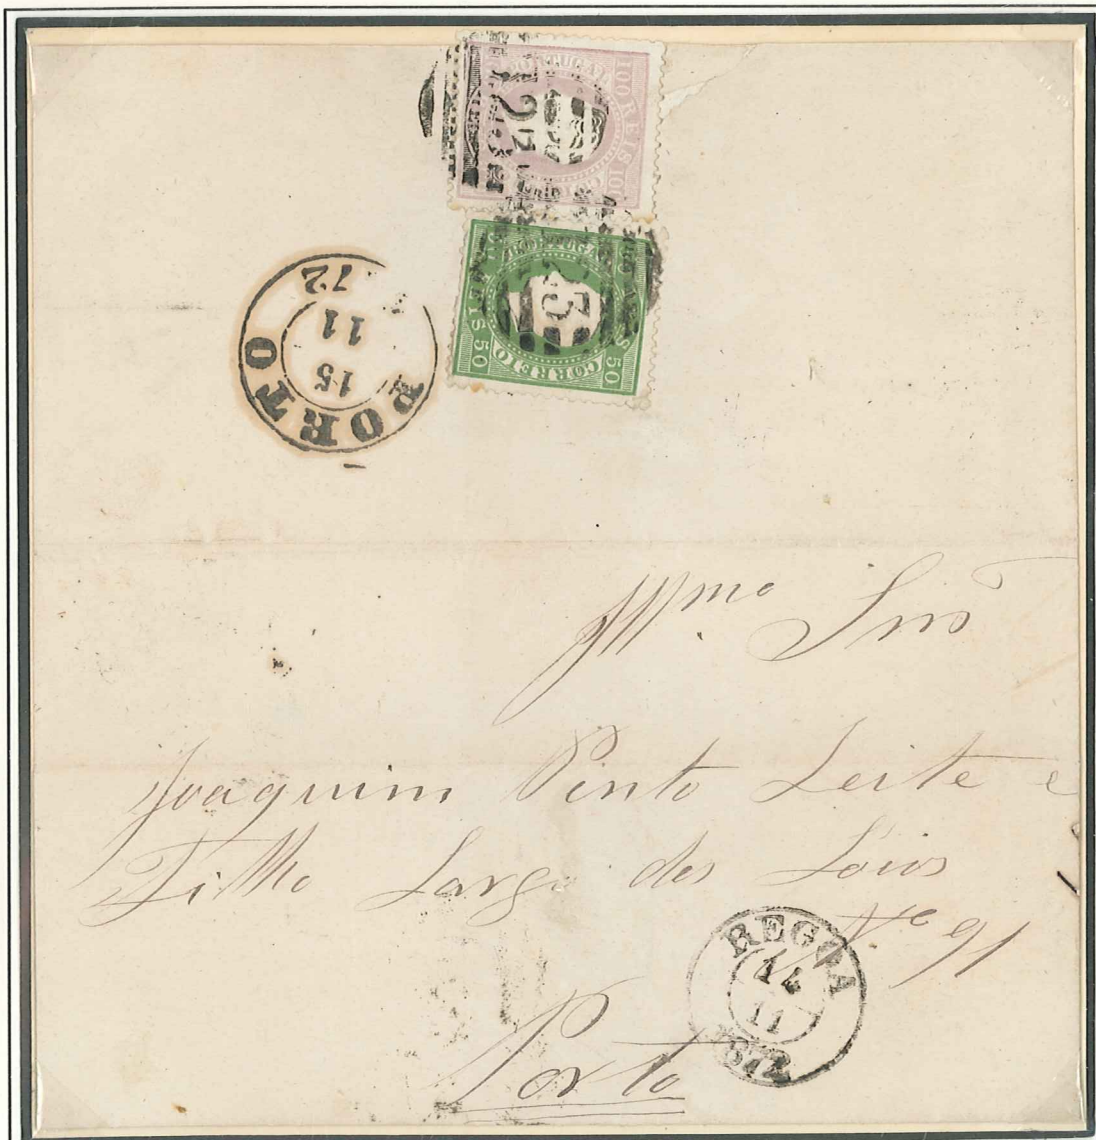 PORTUGAL
100 REIS 100
123
PORTUGAL
REIS 50
CORREIO
50
PORTO
15
11
72
Illmo Snr
Joaquim Pinto Leite e
Filho Largo dos Loios
No 91
REGOA
14
11
872
Porto